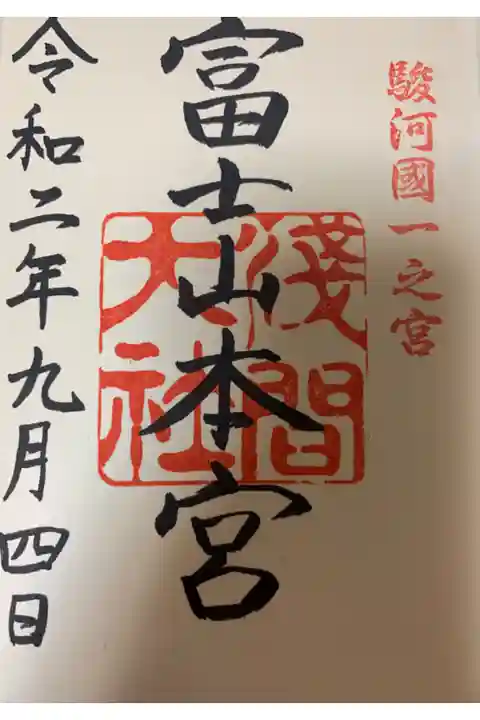 駿河國一之宮
富士山本宮
淺間
大社
令和二年九月四日